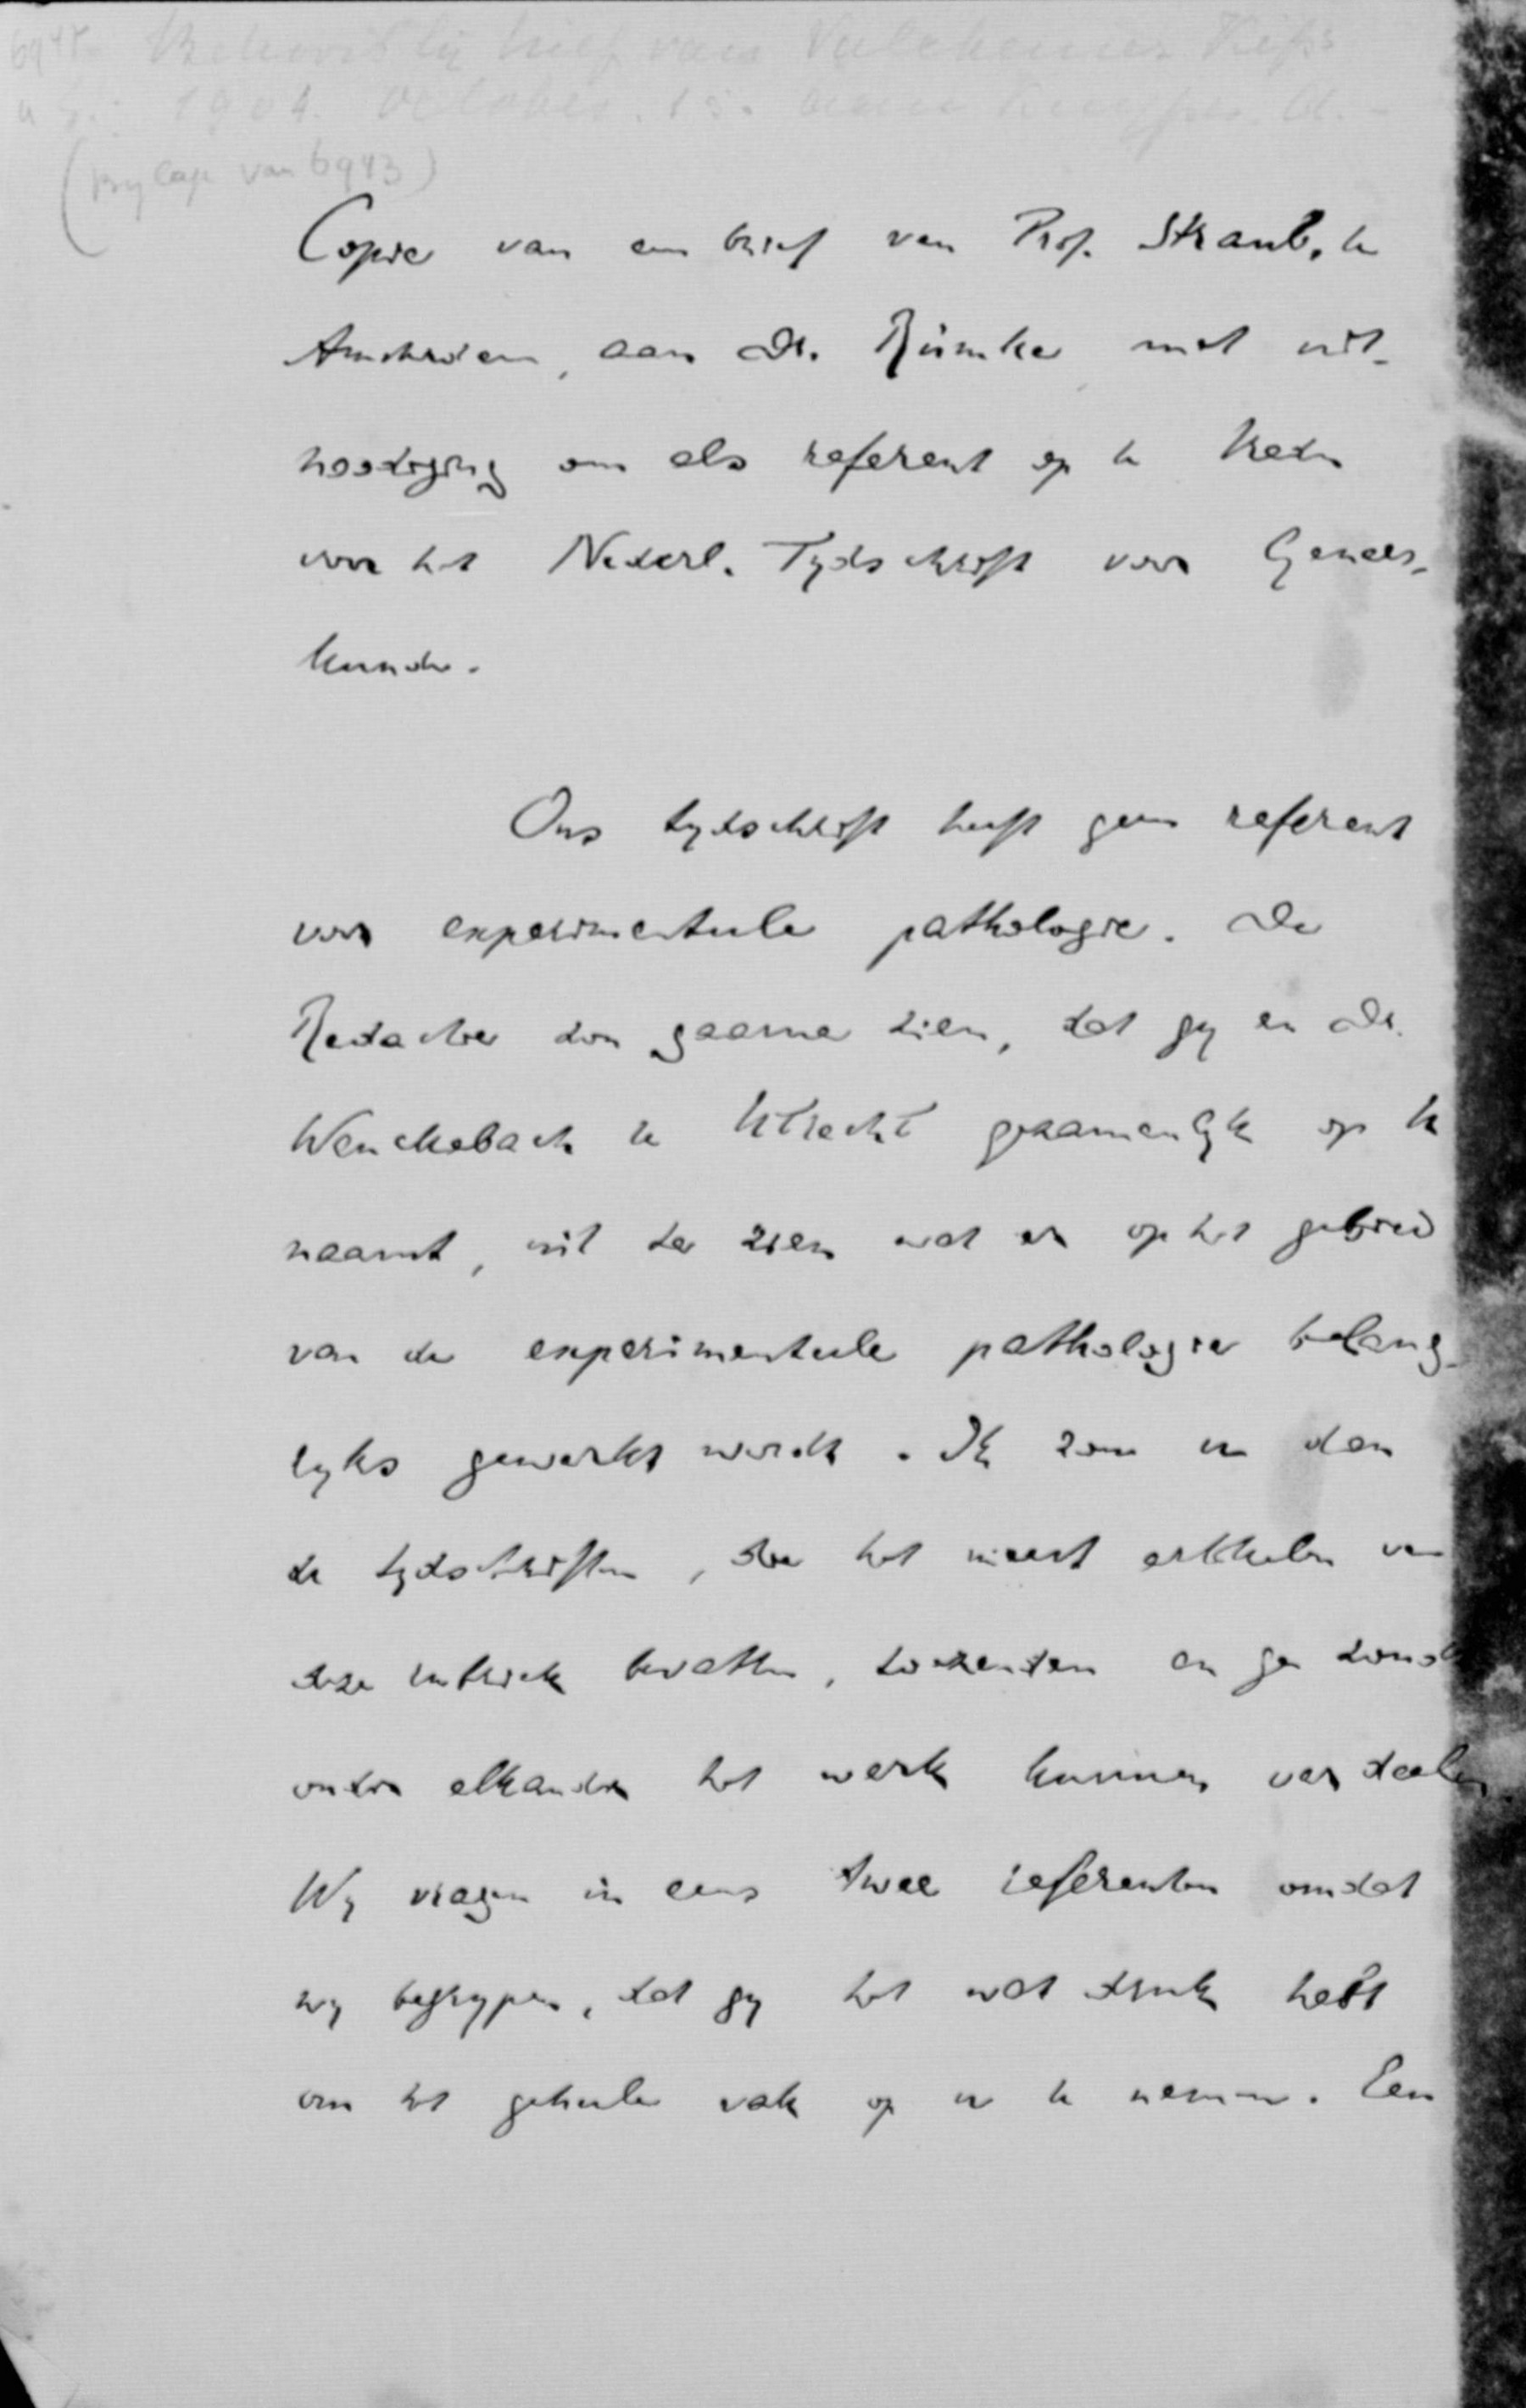 Behoort bij brief van Valckenier Kips
1904. October. 15. aan Kuyper. A.
(Bylage van 6943)
Copie van een brief van Prof. Straub, te
Amsterdam, aan Dr. Rümke met uit-
noodiging om als referent op te treden
voor het Nederl. Tydschrift voor Genees-
kunde.
Ons tydschrift heeft geen referent
voor experimenteele pathologie. De
Redactie zou gaarne zien, dat gy en Dr.
Wenckebach te Utrecht gezamenlyk op te
naamt, uit te zien wat er op het gebied
van de experimenteele pathologie belang-
ryks gewerkt wordt. Ik zou u dan
de tydschriften, die het meest artikelen van
deze rubriek bevatten, toezenden en ge zoudt
onder elkander het werk kunnen verdeelen
Wy vragen in eens twee referenten omdat
wy begrypen, dat gy het wat druk hebt
om het geheele vak op u te nemen. Een